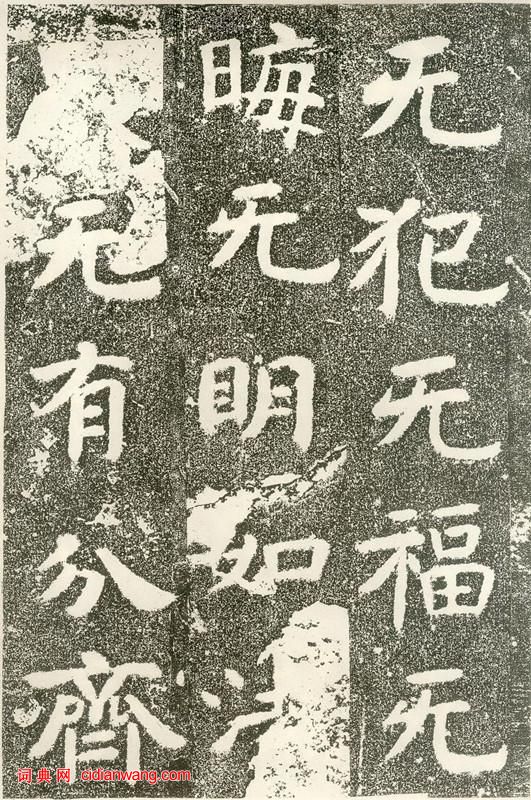 无犯无福无
晦无明如法
无有分齊
词典网 cidianwang.com